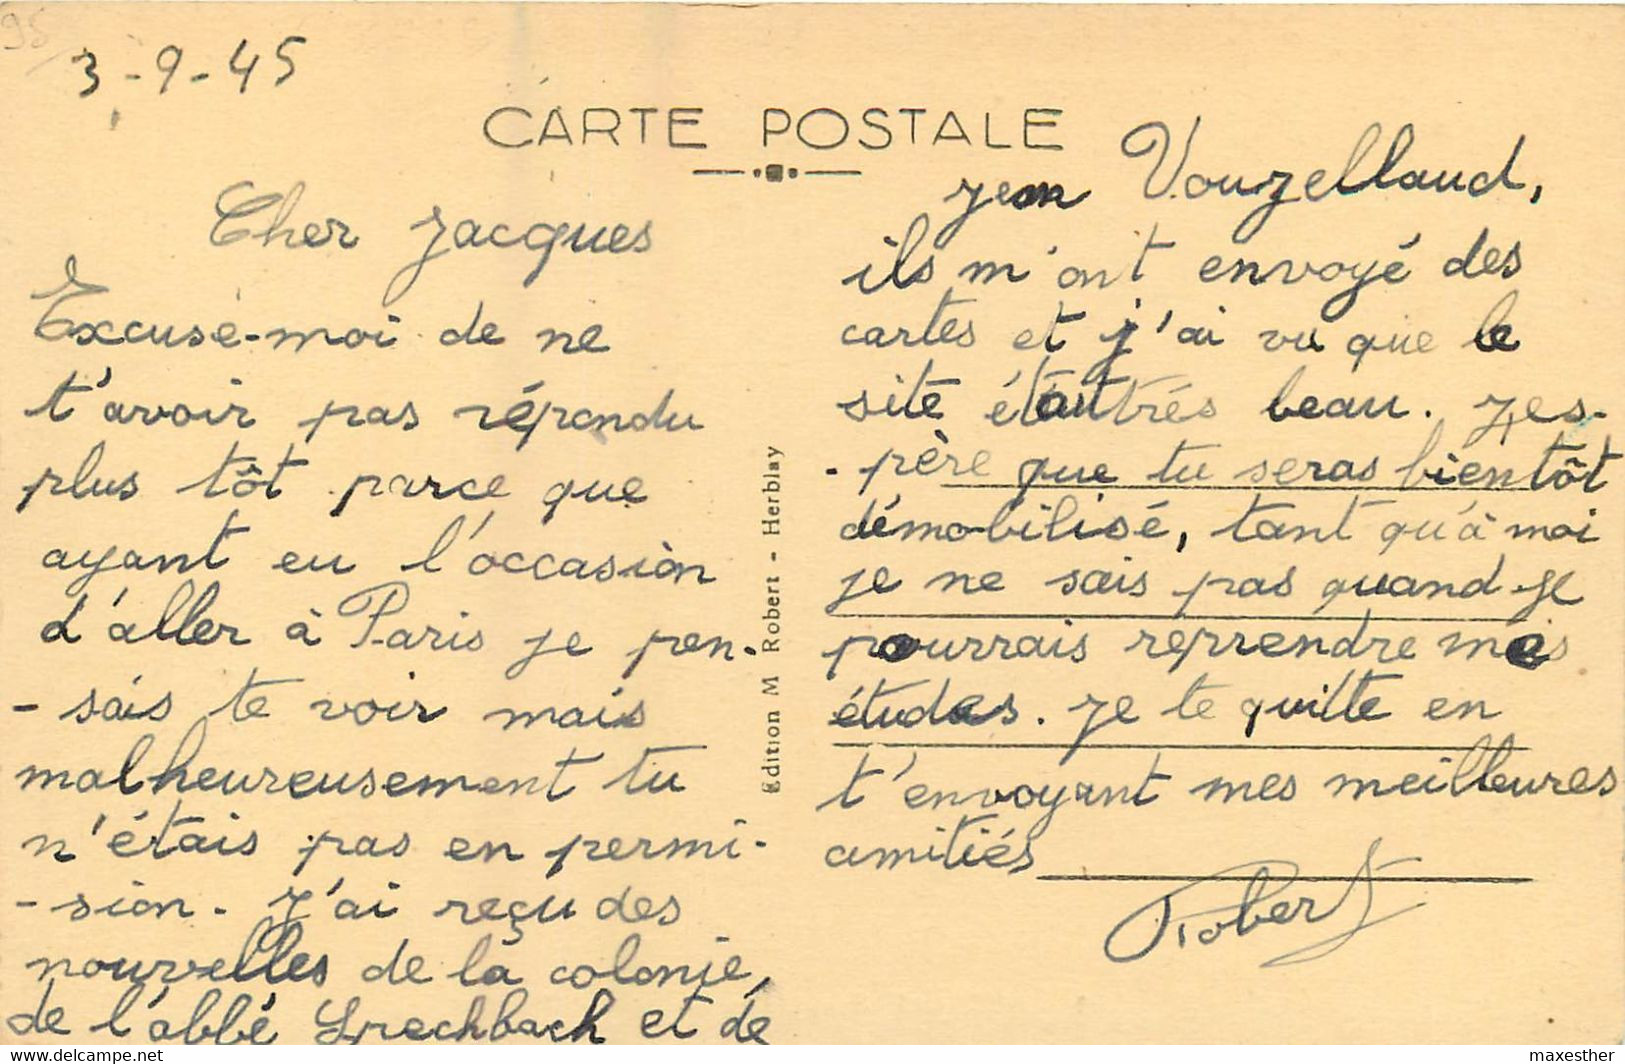 95
3-9-45
CARTE POSTALE
Cher Jacques
Excuse-moi de ne
t'avoir pas répondu
plus tôt parce que
ayant eu l'occasion
d'aller à Paris je pen-
-sais te voir mais
malheureusement tu
n'étais pas en permi-
-sion. J'ai reçu des
nouvelles de la colonie,
de l'abbé et de
Edition M Robert - Herblay
Vouzellaud,
ils m'ont envoyé des
cartes et j'ai vu que le
site était trés beau. J'es-
-père que tu seras bientôt
démobilisé, tant qu'à moi
je ne sais pas quand je
pourrais reprendre mes
études. Je te quitte en
t'envoyant mes meilleures
amitiés
Robert
delcampe.net
maxesther